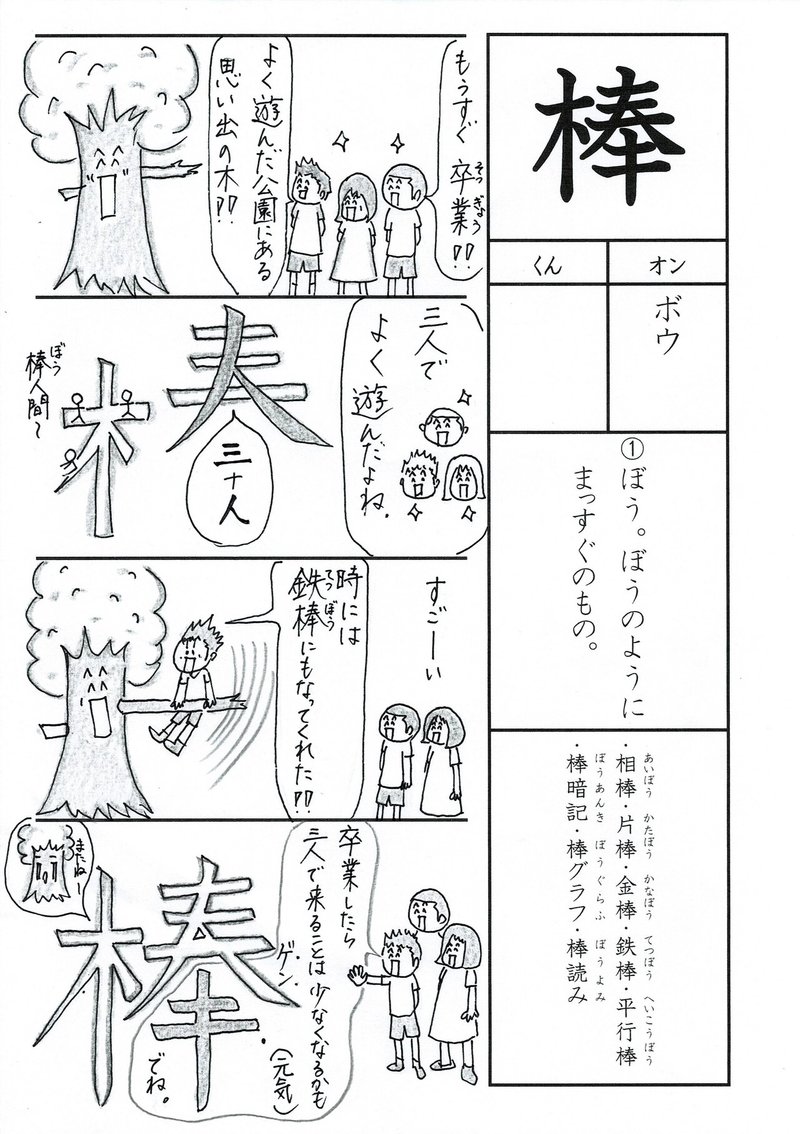 棒
オン
くん
ボウ
①ぼう。ぼうのように
まっすぐのもの。
あいぼう かたぼう かなぼう てつぼう へいこうぼう
・相棒・片棒・金棒・鉄棒・平行棒
ぼうあんき ぼうぐらふ ぼうよみ
・棒暗記・棒グラフ・棒読み
もうすぐ卒業!!
そつぎょう
よく遊んだ公園にある
思い出の木!!
三人で
よく遊んだよね。
三十人
ぼう
棒人間〜
すごーい
時には
鉄棒にもなってくれた!!
てつぼう
卒業したら
三人で来ることは少なくなるかも
ゲン
(元気)
キ
でね。
棒
またねー